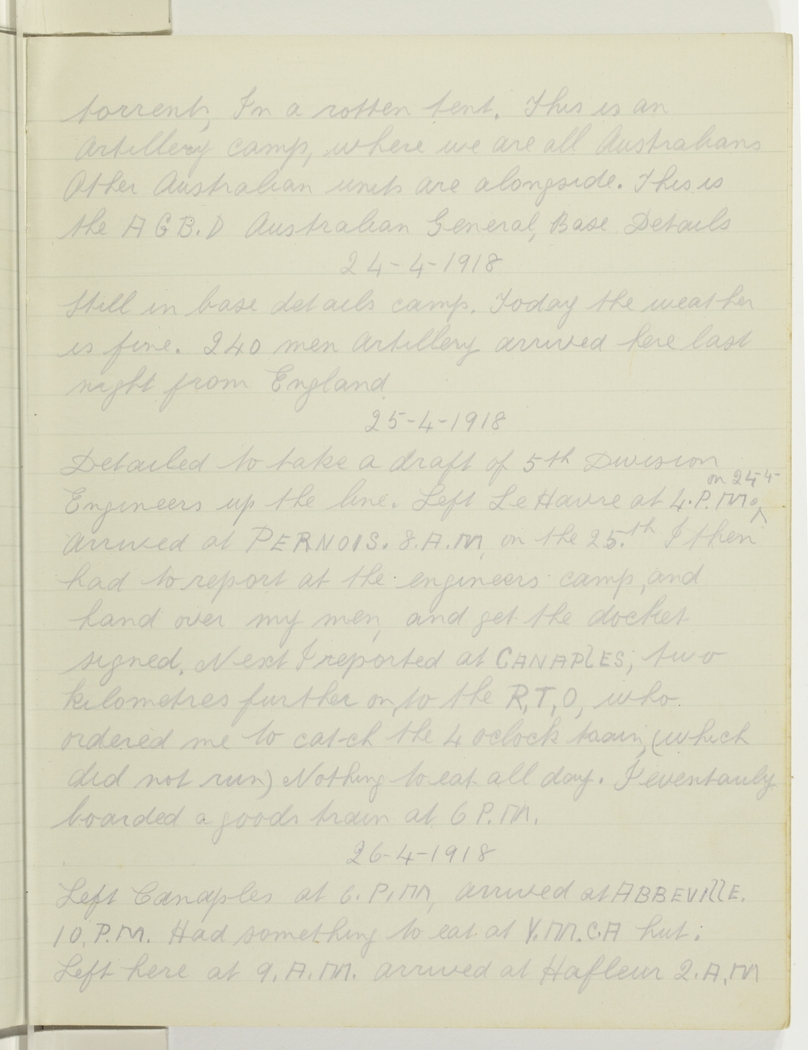 torrents, In a rotten tent. This is an
Artillery camp, where we are all Australians
Other Australian units are alongside. This is
the A G B. D Australian General, Base Details
24-4-1918
Still in base details camp. Today the weather
is fine. 240 men Artillery arrived here last
night from England
25-4-1918
Detailed to take a draft of 5th Division
on 24-4-
Engineers up the line. Left Le Havre at 4.P.M.
arrived at PERNOIS. 8.A.M, on the 25.th I then
had to report at the engineers camp, and
hand over my men, and get the docket
signed. Next I reported at CANAPLES, two
kilometres further on, to the R,T,O, who
ordered me to catch the 4 oclock train, (which
did not run) Nothing to eat all day. I eventauly
boarded a goods train at 6 P.M.
26-4-1918
Left Canaples at 6. P.M, arrived at ABBEVILLE.
10.P.M. Had something to eat at Y.M.C.A hut;
Left here at 9.A.M. arrived at Hafleur 2.A,M